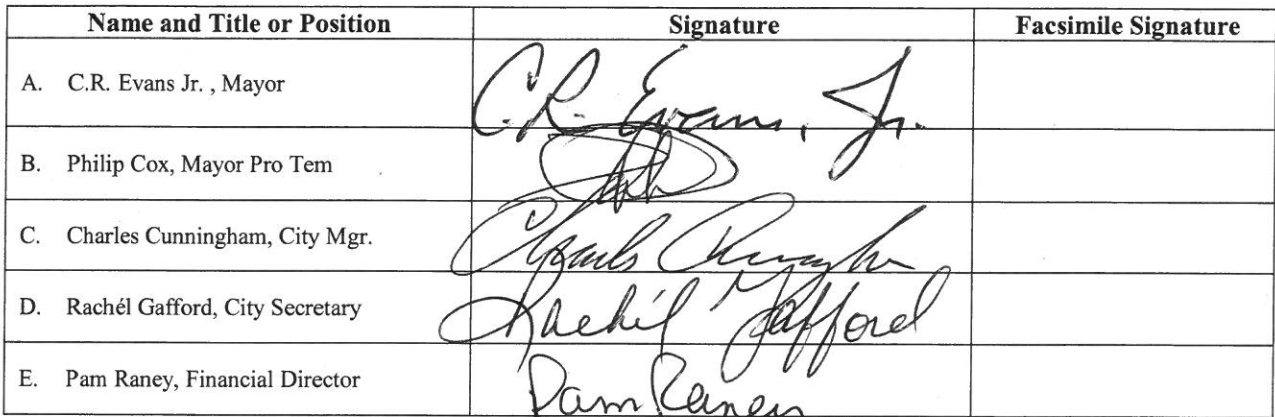 Name and Title or Position Signature Facsimile Signature
A. C.R. Evans Jr. , Mayor C.R. Evans, Jr.
B. Philip Cox, Mayor Pro Tem
C. Charles Cunningham, City Mgr. Charles Cunningham
D. Rachél Gafford, City Secretary Rachél Gafford
E. Pam Raney, Financial Director Pam Raney